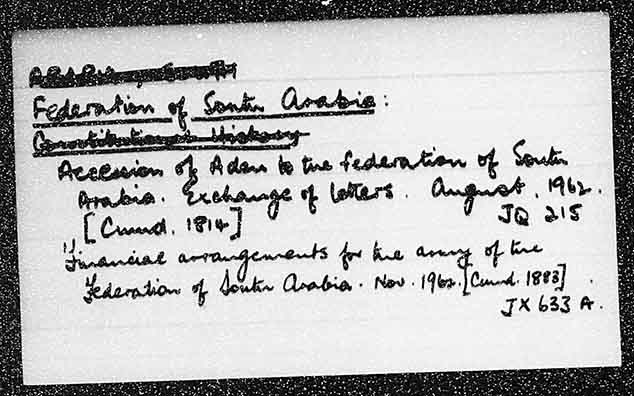 ARABIA, SOUTH
Federation of South Arabia:
Constitutional History
Accession of Aden to the federation of South
Arabia. Exchange of letters. August, 1962.
[Cmnd. 1814] JQ 215
Financial arrangements for the army of the
Federation of South Arabia. Nov. 1962. [Cmnd. 1883]
JX 633 A.